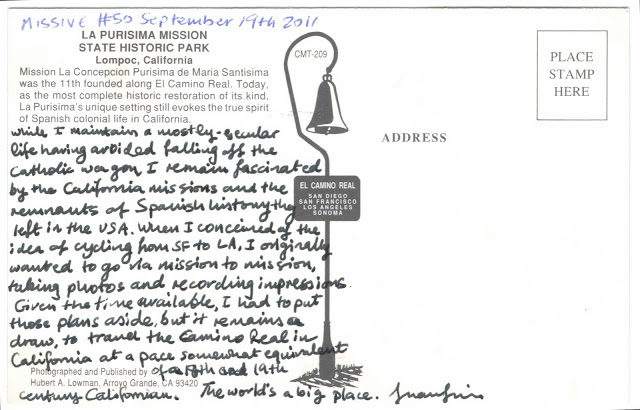 MISSIVE #50 September 19th 2011
LA PURISIMA MISSION
STATE HISTORIC PARK
Lompoc, California
Mission La Concepcion Purisima de Maria Santisima
was the 11th founded along El Camino Real. Today,
as the most complete historic restoration of its kind,
La Purisima's unique setting still evokes the true spirit
of Spanish colonial life in California.
while I maintain a mostly-secular
life having avoided falling off the
Catholic wagon, I remain fascinated
by the California missions and the
remnants of Spanish history they
left in the USA. When I conceived of the
idea of cycling from SF to LA, I originally
wanted to go via mission to mission,
taking photos and recording impressions.
Given the time available, I had to put
those plans aside, but it remains a
draw, to travel the Camino Real in
California at a pace somewhat equivalent
of a 18th and 19th
century Californian. The world's a big place.
Photographed and Published by
Hubert A. Lowman, Arroyo Grande, CA 93420
CMT-209
EL CAMINO REAL
SAN DIEGO
SAN FRANCISCO
LOS ANGELES
SONOMA
ADDRESS
PLACE
STAMP
HERE